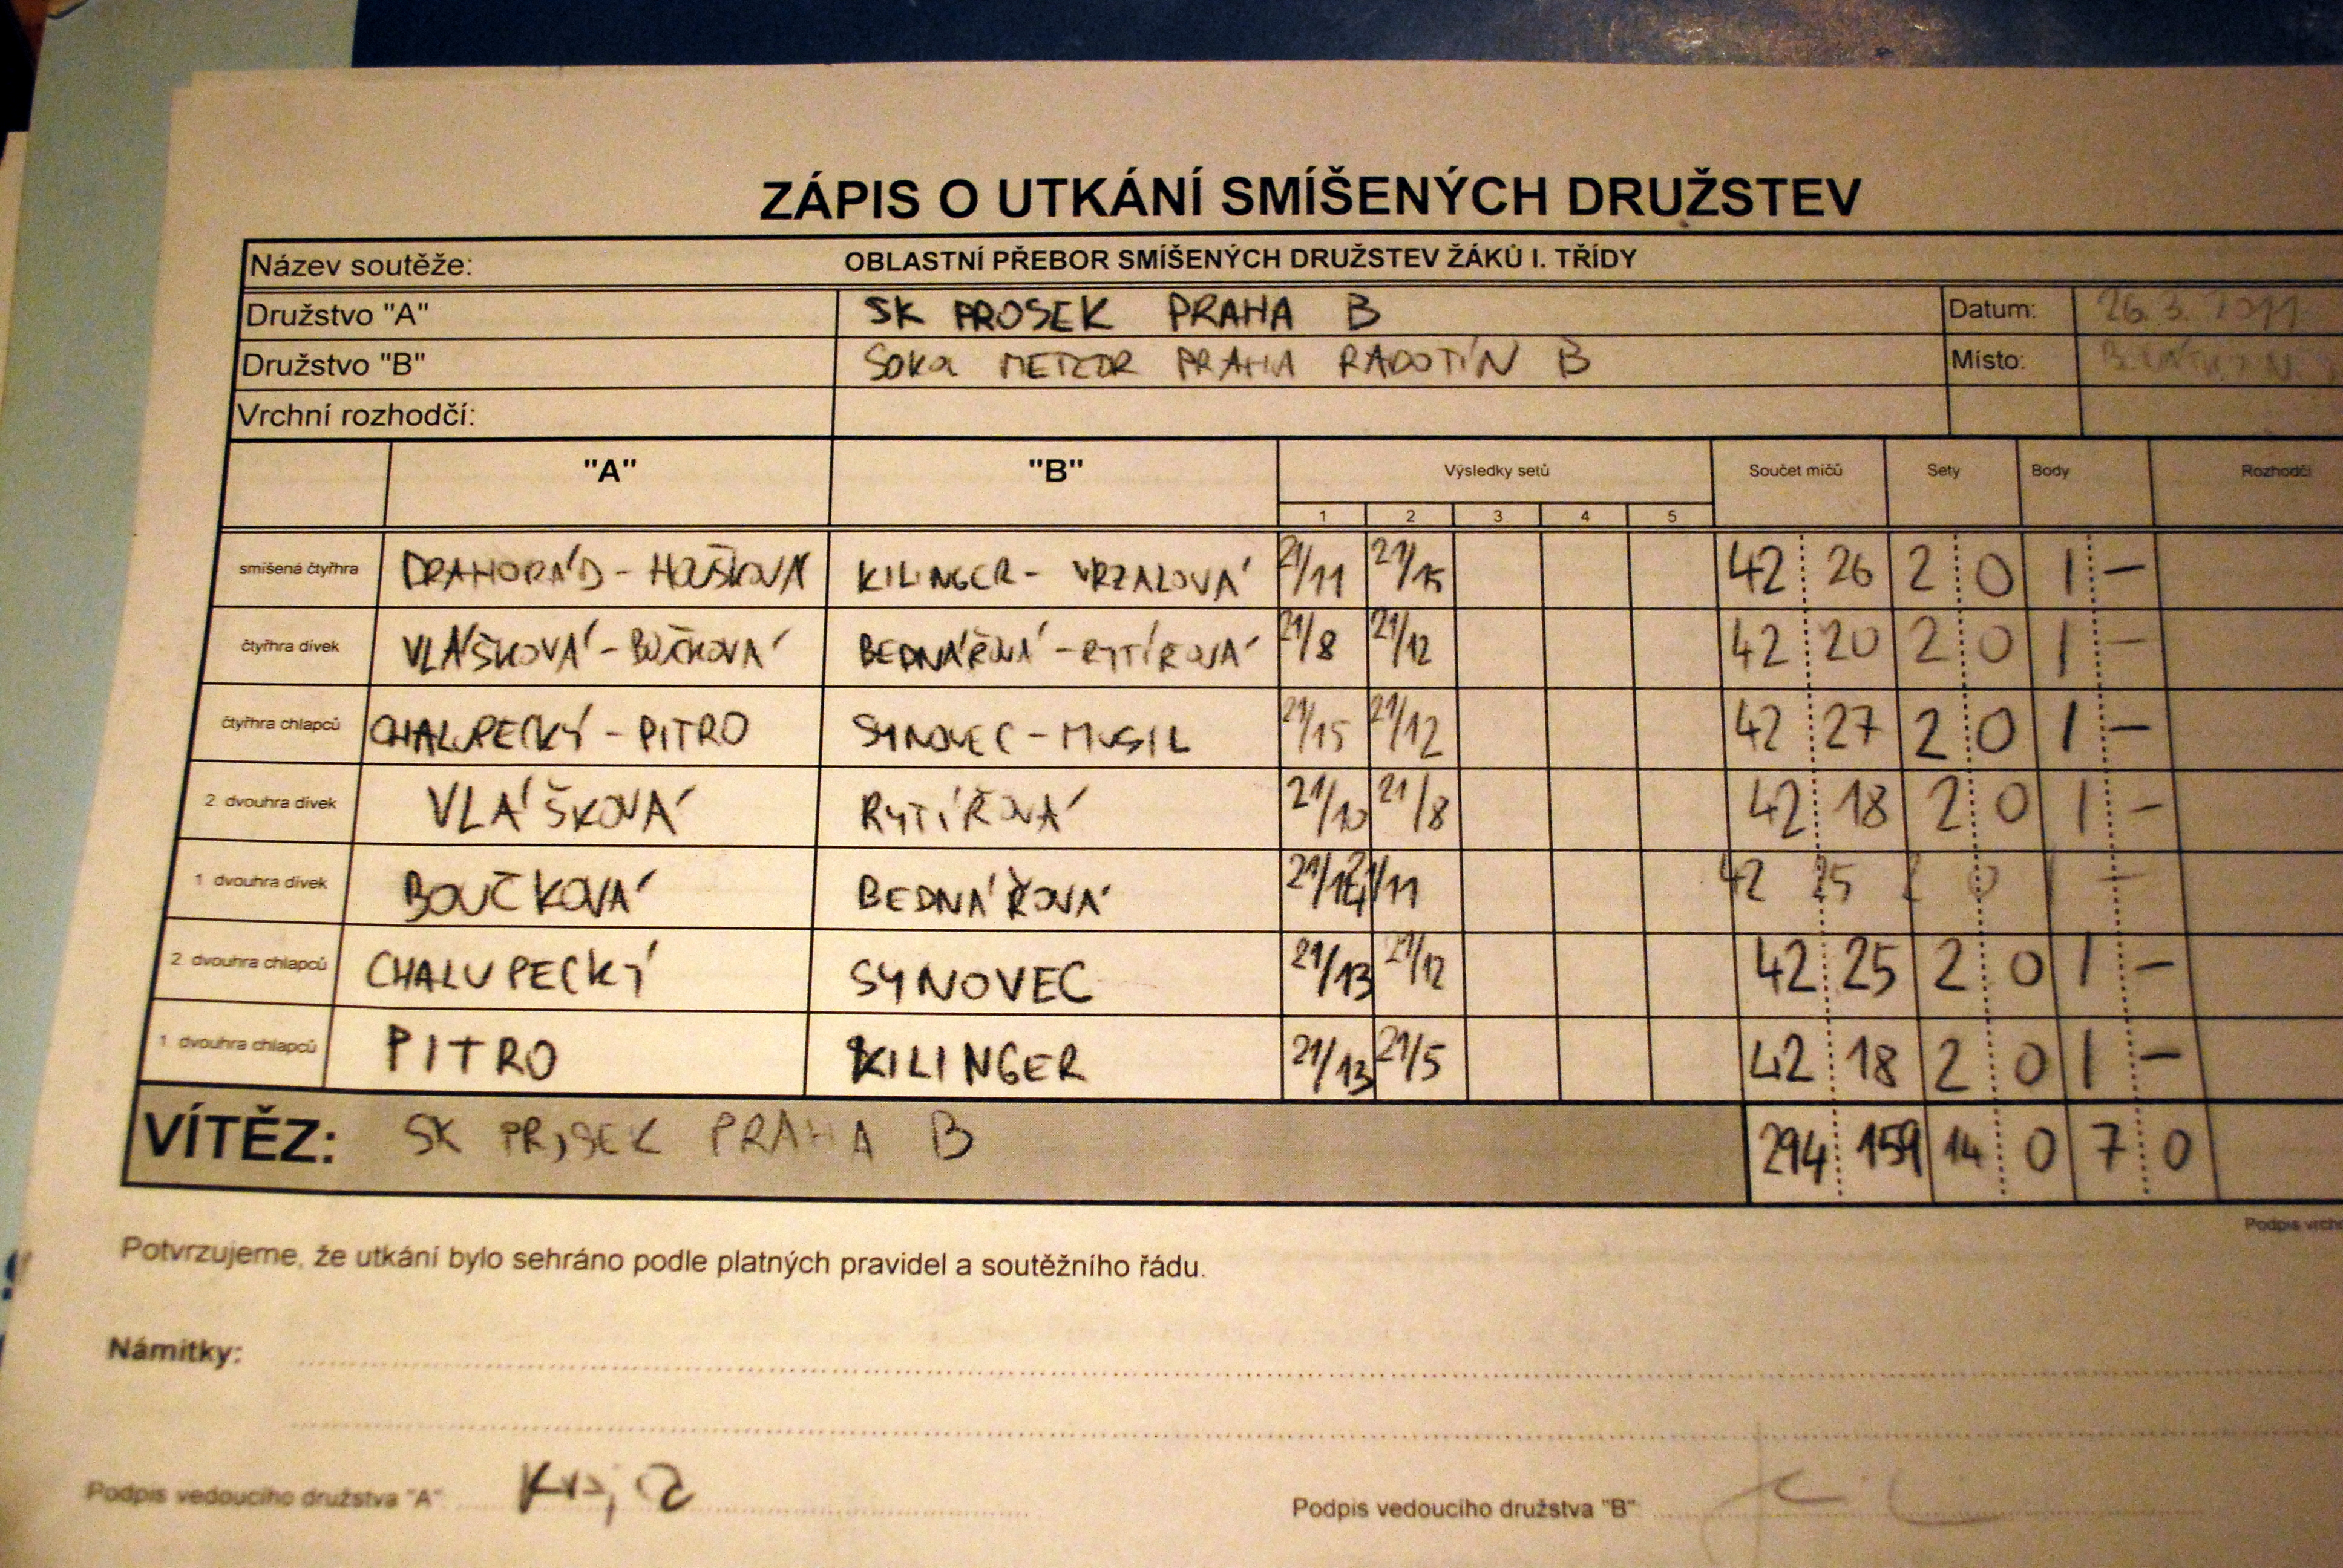 ZÁPIS O UTKÁNÍ SMÍŠENÝCH DRUŽSTEV
Název soutěže: OBLASTNÍ PŘEBOR SMÍŠENÝCH DRUŽSTEV ŽÁKŮ I. TŘÍDY
Družstvo "A" SK PROSEK PRAHA B Datum: 26.3. 2011
Družstvo "B" SOKOL METEOR PRAHA RADOTÍN B Místo:
Vrchní rozhodčí:
"A" "B" Výsledky setů Součet míčů Sety Body Rozhodčí
1 2 3 4 5
smíšená čtyřhra DRAHORÁD - HOŠKOVÁ KILINGER - VRZALOVÁ 21/11 21/15 42 26 2 0 1 -
čtyřhra dívek VLÁŠKOVÁ - BOUČKOVÁ BEDNÁŘOVÁ - RYTÍŘOVÁ 21/8 21/12 42 20 2 0 1 -
čtyřhra chlapců CHALUPECKÝ - PITRO SYNOVEC - MUSIL 21/15 21/12 42 27 2 0 1 -
2. dvouhra dívek VLÁŠKOVÁ RYTÍŘOVÁ 21/10 21/8 42 18 2 0 1 -
1 dvouhra dívek BOUČKOVÁ BEDNÁŘOVÁ 21/14 21/11 42 25 2 0 1 -
2. dvouhra chlapců CHALUPECKÝ SYNOVEC 21/13 21/12 42 25 2 0 1 -
1 dvouhra chlapců PITRO KILINGER 21/13 21/5 42 18 2 0 1 -
VÍTĚZ: SK PROSEK PRAHA B 294 159 14 0 7 0
Podpis
Potvrzujeme, že utkání bylo sehráno podle platných pravidel a soutěžního řádu.
Námitky:
Podpis vedoucího družstva "A" Podpis vedoucího družstva "B"